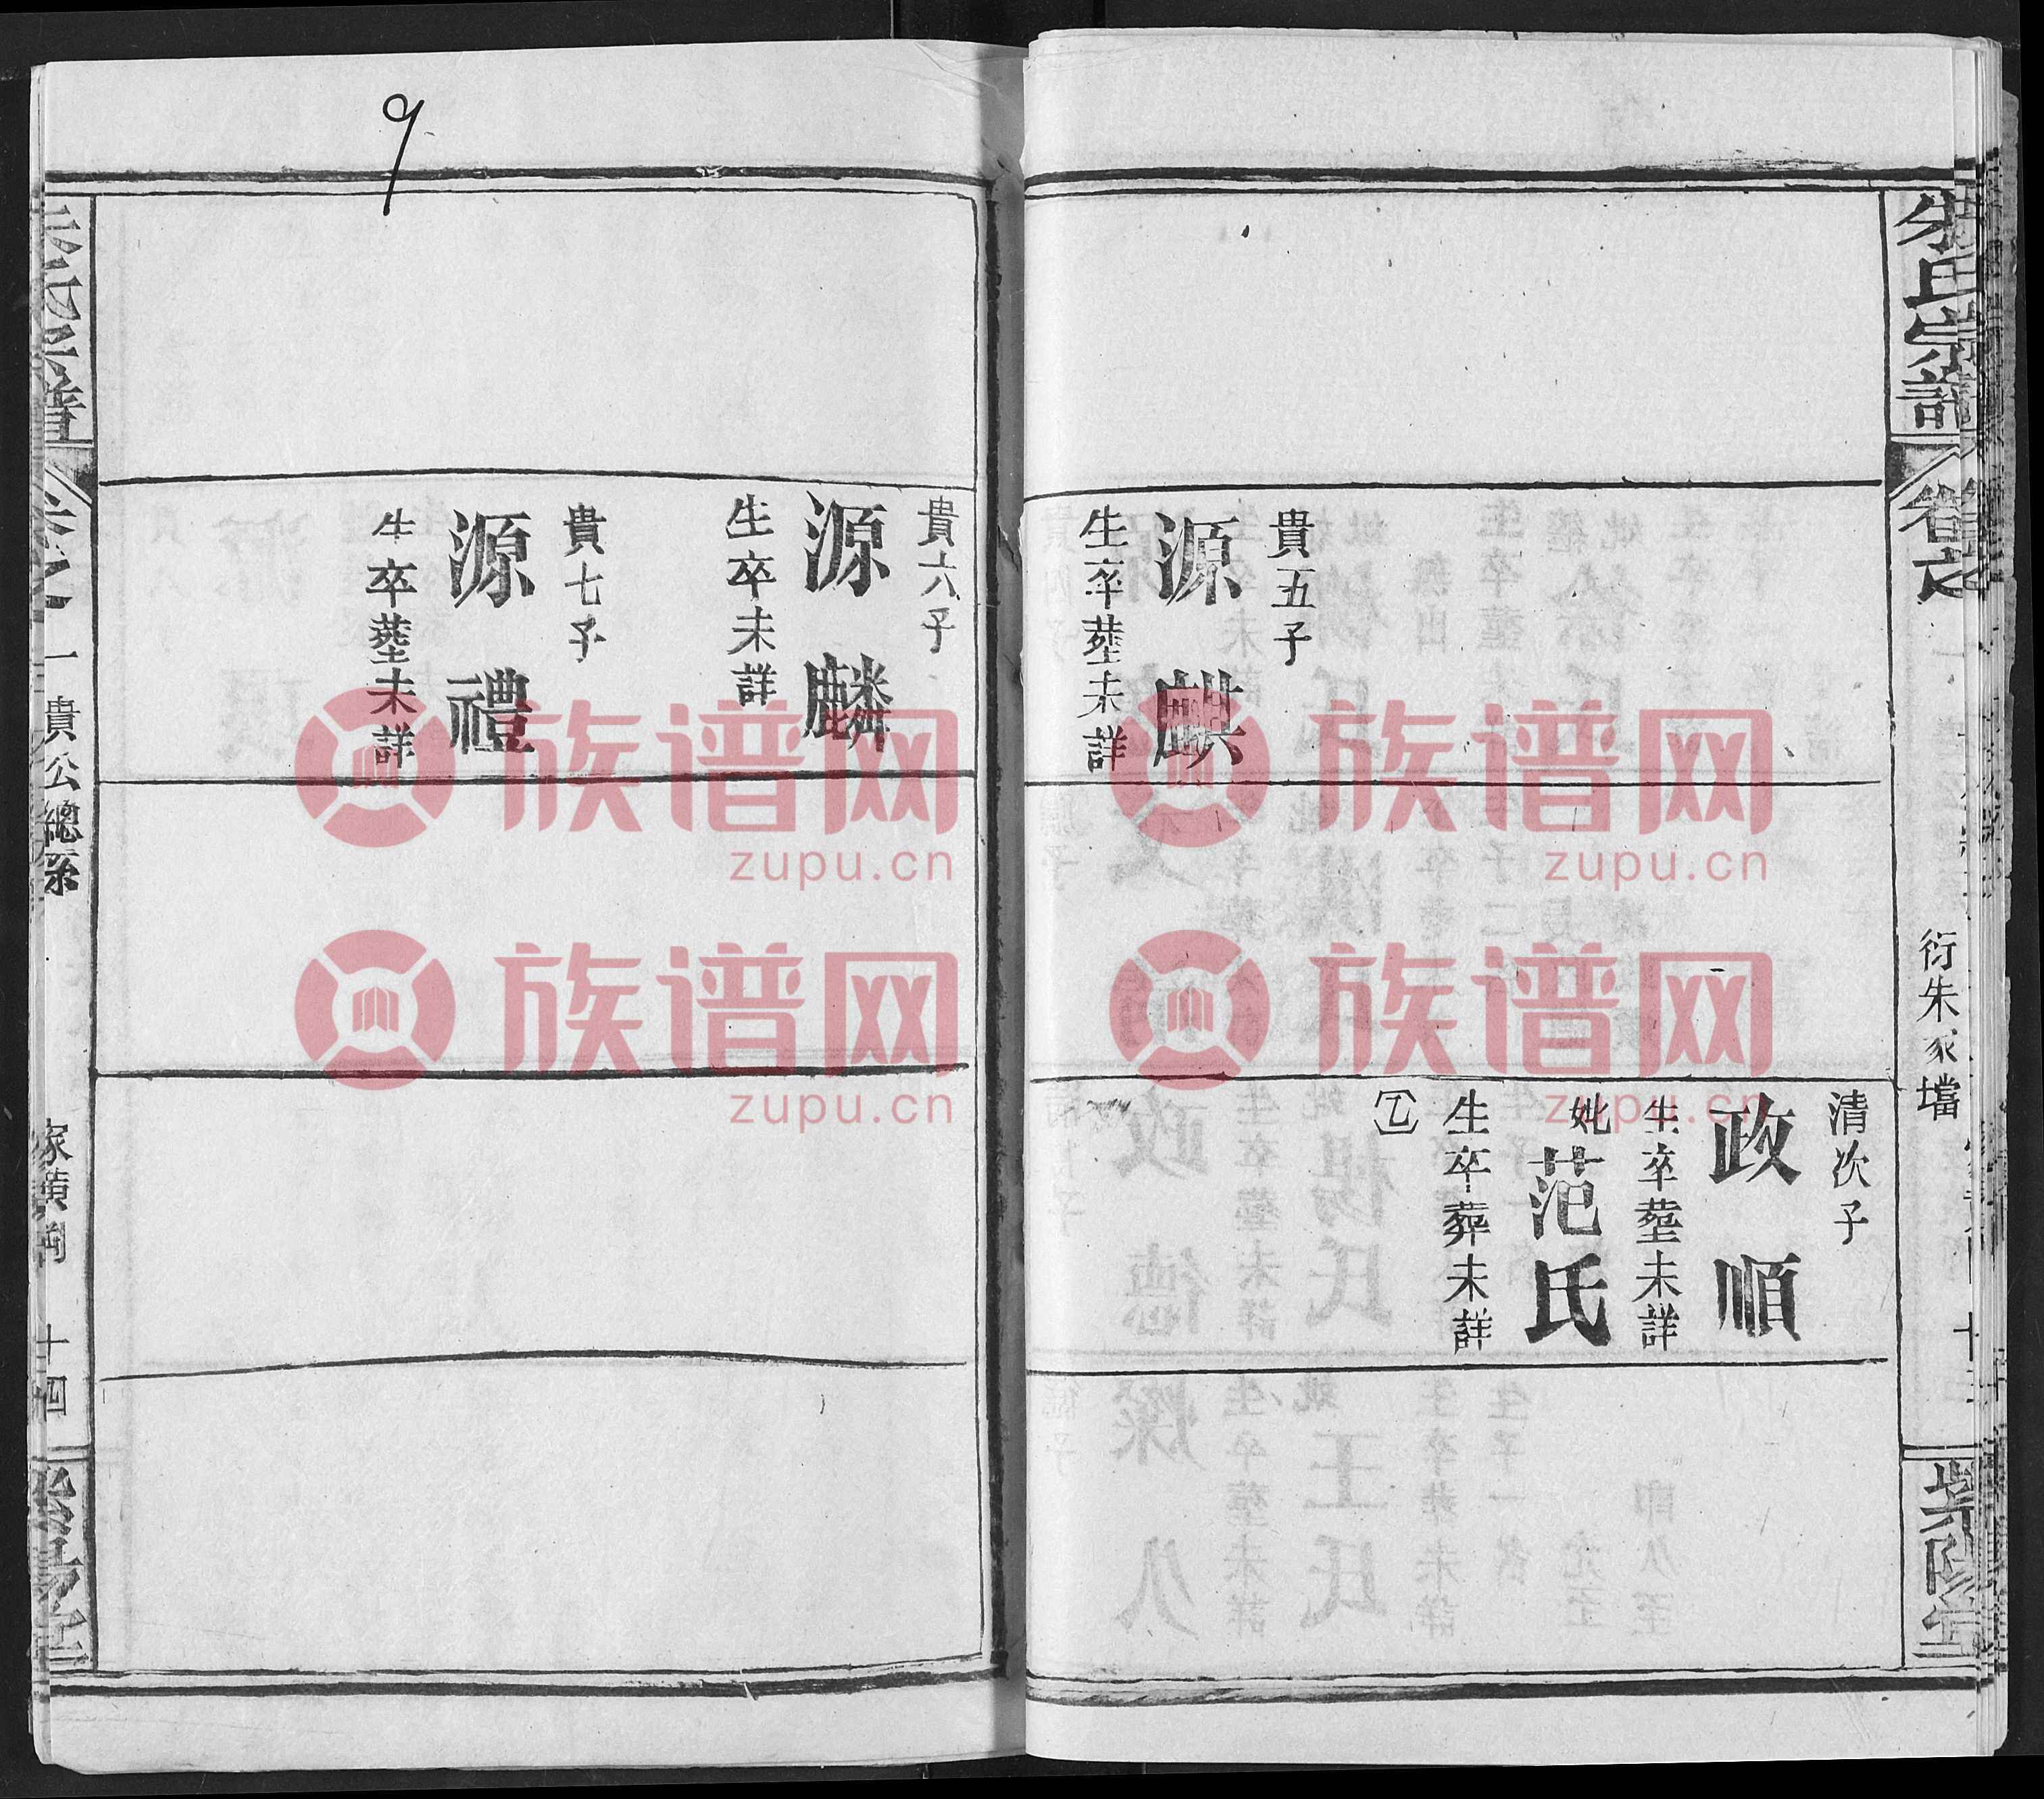 朱氏宗譜
卷之
衍朱家壋
紫陽堂
清次子
政順
生卒塟未詳
妣范氏
生卒葬未詳
乀
貴五子
源麒
生卒塟未詳
貴六子
源麟
生卒未詳
貴七子
源禮
生卒塟未詳
9
卷之一
貴公總系
家黄岡
十四
族谱网
zupu.cn
族谱网
zupu.cn
族谱网
zupu.cn
族谱网
zupu.cn